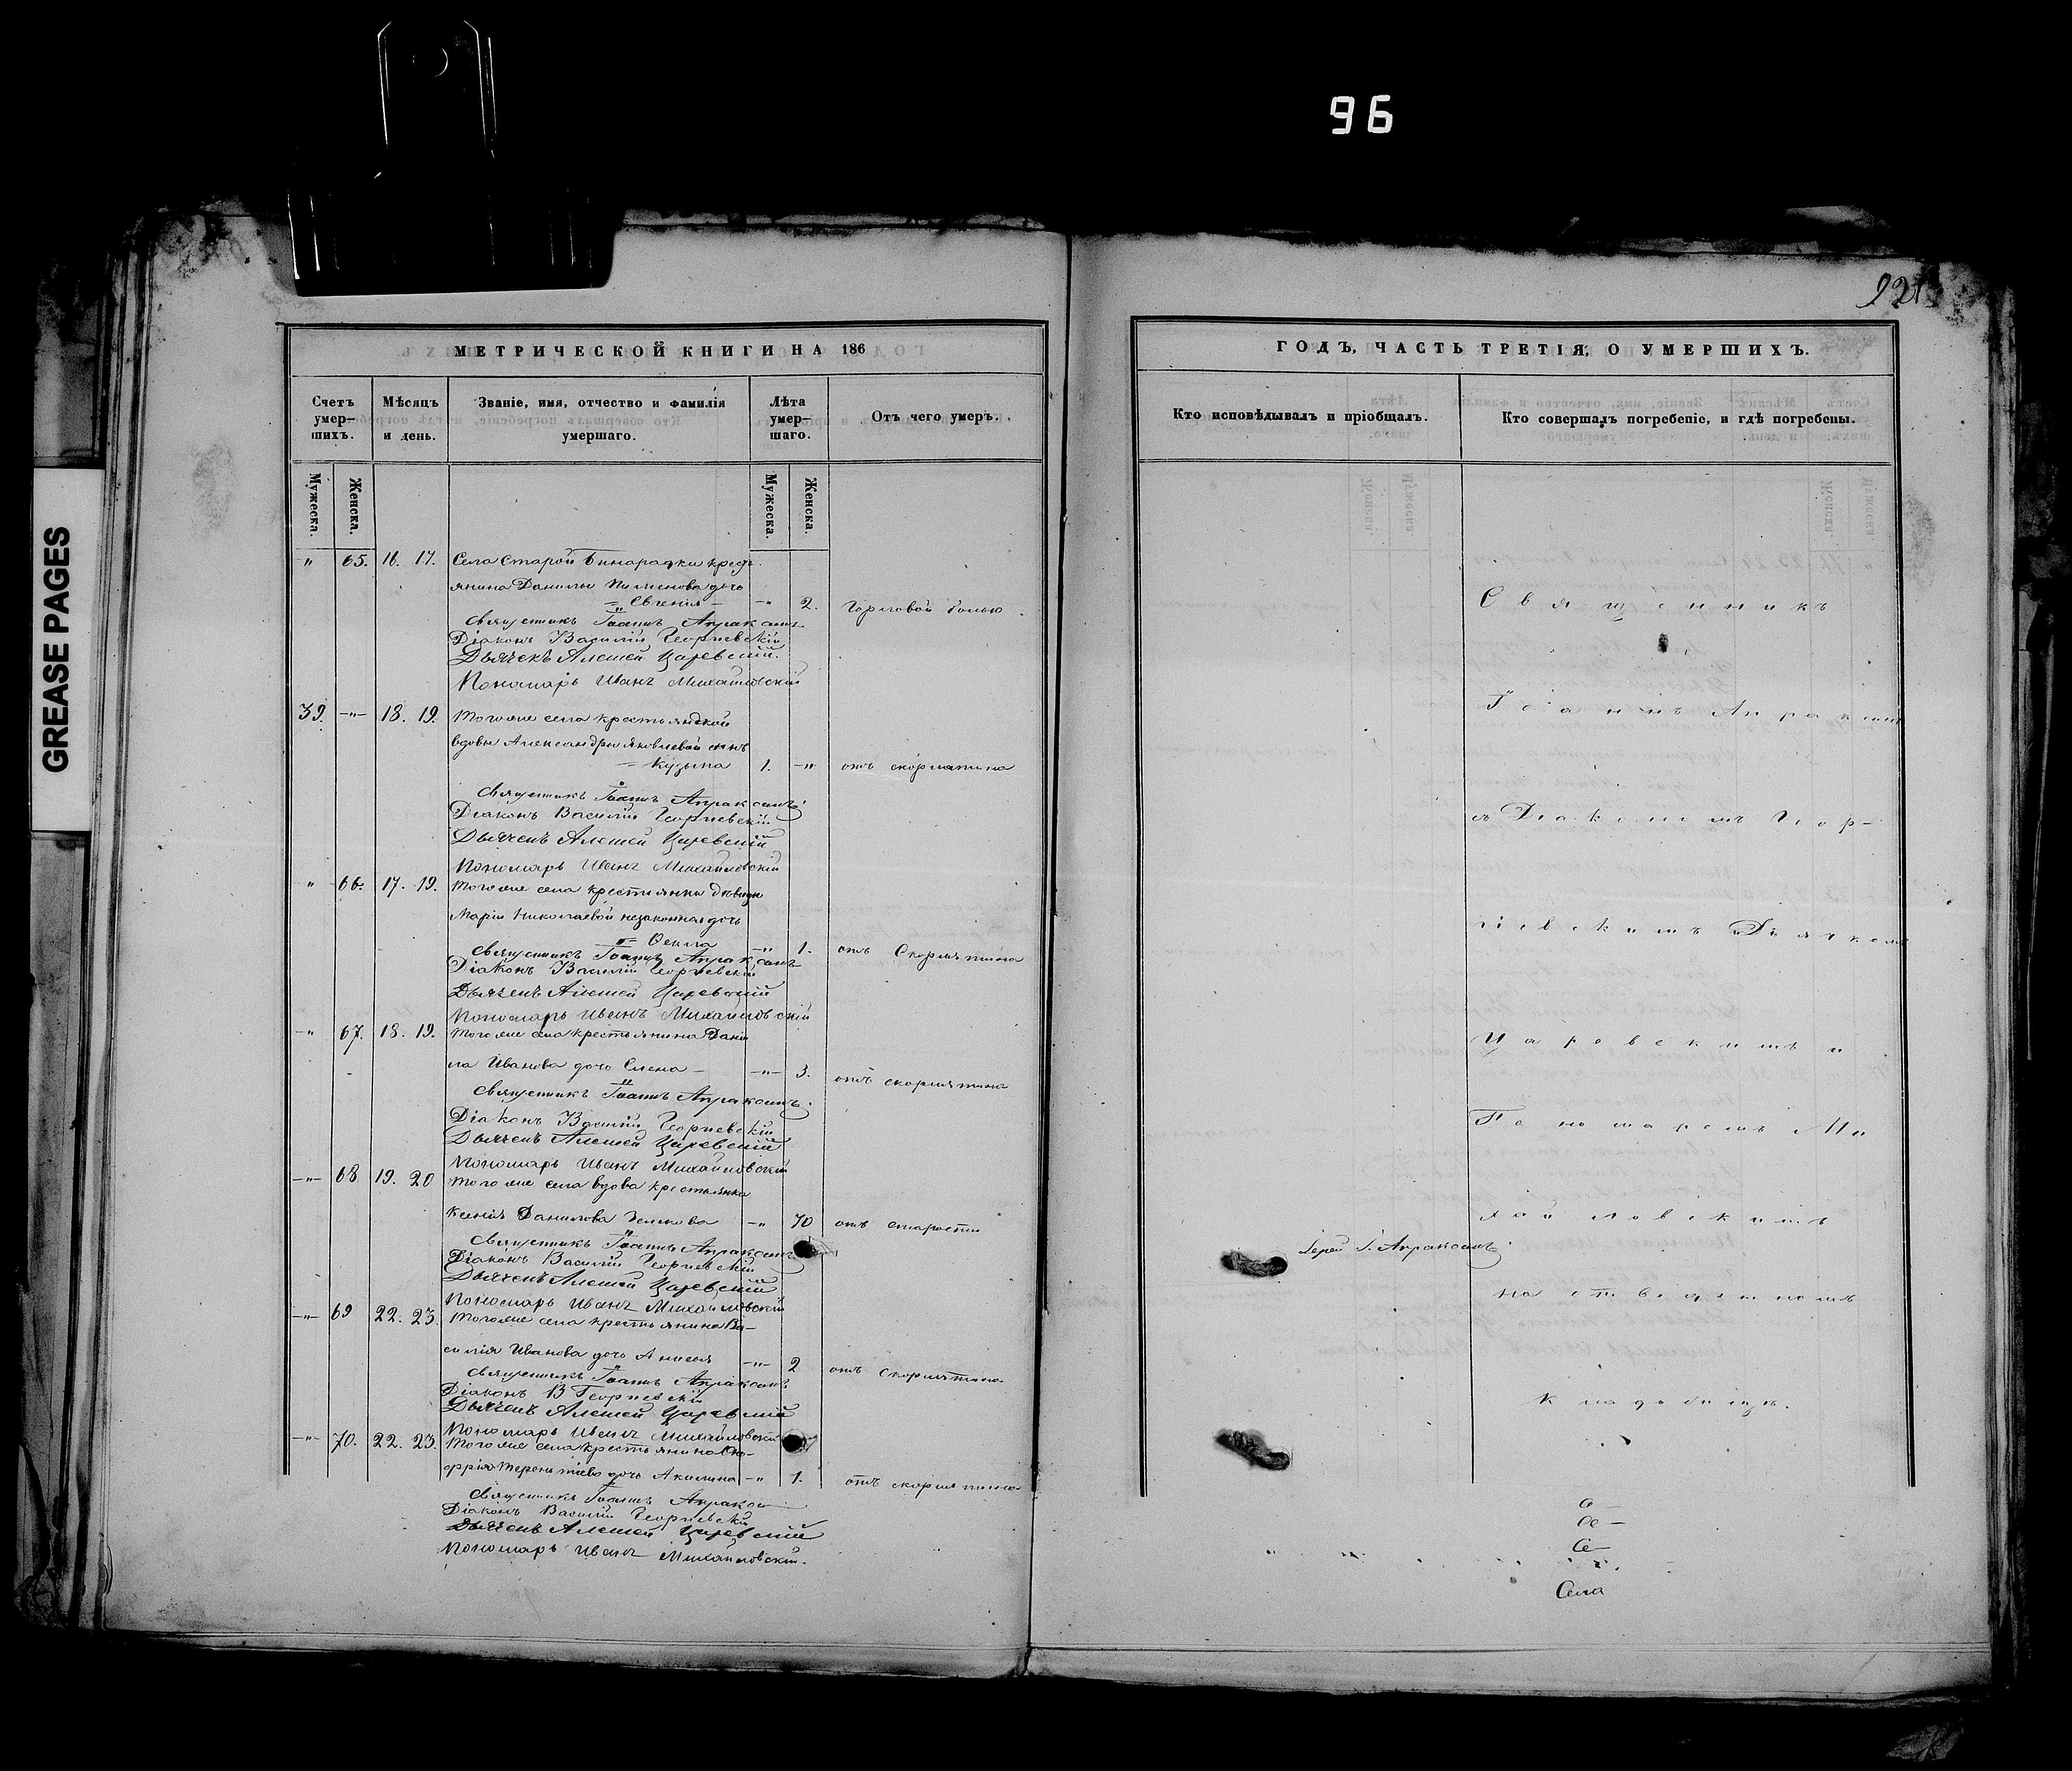 96
921
GREASE PAGES
МЕТРИЧЕСКОЙ КНИГИ НА 186
Счетъ умер-шихъ.
Мѣсяцъ и день.
Званіе, имя, отчество и фамилія умершаго.
Лѣта умер-шаго.
Отъ чего умеръ.
Мужеска.
Женска.
Мужеска.
Женска.
" 65. 16. 17. Села Старой Бинарадки кресть
янина Данилы Пименова дочь
= Евгенія - -"- 2. Горловой болью.
Священникъ Іоаннъ Апраксинъ
Діаконъ Василій Георгіевскій
Дьячекъ Алексей Царевскій.
Пономарь Иванъ Михайловскій
39. -"- 18. 19. Тогоже села крестьянской
вдовы Александры Яковлевой сынъ
= Кузьма 1. -"- отъ скорлатина
Священникъ Іоаннъ Апраксинъ
Діаконъ Василій Георгіевскій
Дьячекъ Алексей Царевскій
Пономарь Иванъ Михайловскій
" 66. 17. 19. Тогоже села крестьянки дѣвицы
Маріи Николаевой незаконная дочь
= Ѳекла -"- 1. отъ Скорлатина
Священникъ Іоаннъ Апраксинъ
Діаконъ Василій Георгіевскій
Дьячекъ Алексей Царевскій
Пономарь Иванъ Михайловскій
-"- 67. 18. 19. Тогоже села крестьянина Дани
ла Иванова дочь Елена - -"- 3. отъ скорлатина
Священникъ Іоаннъ Апраксинъ.
Діаконъ Василій Георгіевскій
Дьячекъ Алексей Царевскій
Пономарь Иванъ Михайловскій
-"- 68 19. 20 Тогоже села вдова крестьянка
Ксенія Данилова -"- 70 отъ старости
Священникъ Іоаннъ Апраксинъ
Діаконъ Василій Георгіевскій
Дьячекъ Алексей Царевскій
Пономарь Иванъ Михайловскій
-"- 69 22. 23. Тогоже села крестьянина Ва-
силія Иванова дочь Анисія -"- 2 отъ Скорлатина
Священникъ Іоаннъ Апраксинъ
Діаконъ В Георгіевскій
Дьячекъ Алексей Царевскій
Пономарь Иванъ Михайловскій
-"- 70. 22. 23. Тогоже села крестьянина Оно-
фрія Терентіева дочь Акилина -"- 1. отъ скорлатина
Священникъ Іоаннъ Апракси
Діаконъ Василій Георгіевскій
Дьячекъ Алексей Царевскій
Пономарь Иванъ Михайловскій.
ГОДЪ, ЧАСТЬ ТРЕТІЯ, О УМЕРШИХЪ.
Кто исповѣдывалъ и пріобщалъ.
Кто совершалъ погребеніе, и гдѣ погребены.
Священникъ
Іоаннъ Апраксинъ
съ Діакономъ Геор-
гіевскимъ Дьячкомъ
Царевскимъ и
Пономаремъ Ми
хайловскимъ
Іерей І. Апраксинъ
на отведенномъ
кладбищѣ.
Се-
Села